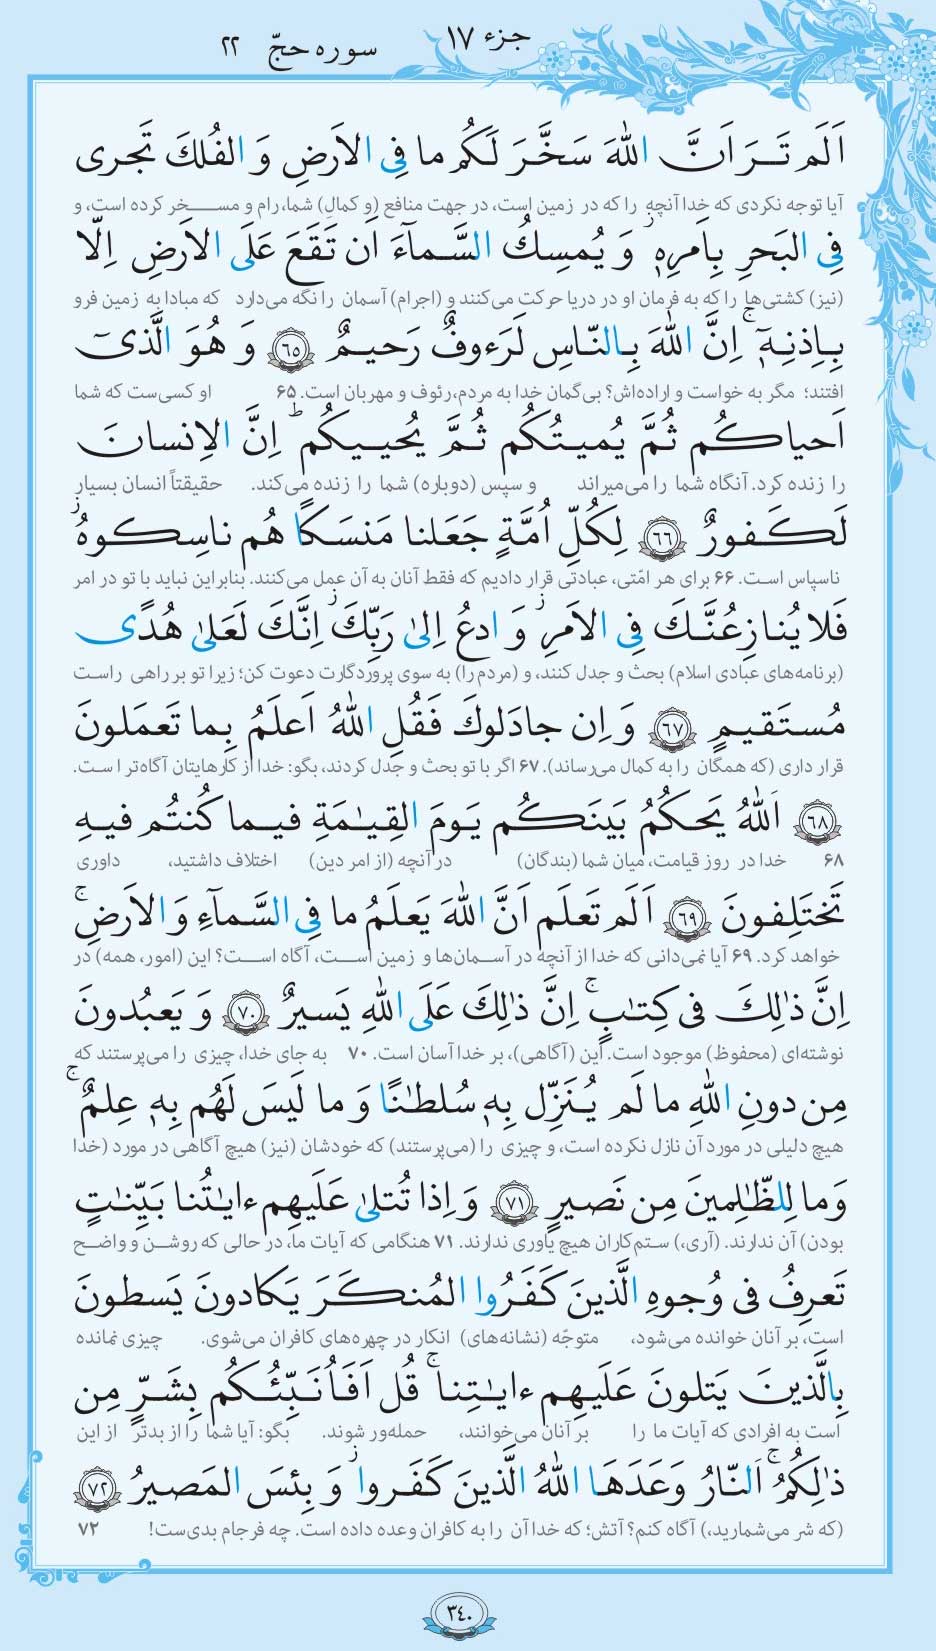 جزء ۱۷
سوره حجّ ۲۲
اَلَم تَرَ اَنَّ اللّٰهَ سَخَّرَ لَكُم ما فِى الاَرضِ وَ الفُلكَ تَجرى
آیا توجه نکردی که خدا آنچه را که در زمین است، در جهت منافع (و کمالِ) شما، رام و مسخر کرده است، و
فِى البَحرِ بِاَمرِهٖ ز وَ يُمسِكُ السَّمآءَ اَن تَقَعَ عَلَى الاَرضِ اِلّا
(نیز) کشتی‌ها را که به فرمان او در دریا حرکت می‌کنند و (اجرام) آسمان را نگه می‌دارد که مبادا به زمین فرو
بِاِذنِهٖٓ ج اِنَّ اللّٰهَ بِالنّاسِ لَرَءوفٌ رَحيمٌ ﴿۶۵﴾ وَ هُوَ الَّذىٓ
افتند؛ مگر به خواست و اراده‌اش؟ بی‌گمان خدا به مردم، رئوف و مهربان است. ۶۵ او کسی‌ست که شما
اَحياكُم ثُمَّ يُميتُكُم ثُمَّ يُحييكُم ط اِنَّ الاِنسانَ
را زنده کرد. آنگاه شما را می‌میراند و سپس (دوباره) شما را زنده می‌کند. حقیقتاً انسان بسیار
لَكَفورٌ ﴿۶۶﴾ لِكُلِّ اُمَّةٍ جَعَلنا مَنسَكًا هُم ناسِكوهُ ز
ناسپاس است. ۶۶ برای هر امّتی، عبادتی قرار دادیم که فقط آنان به آن عمل می‌کنند. بنابراین نباید با تو در امر
فَلا يُنازِعُنَّكَ فِى الاَمرِ ز وَ ادعُ اِلىٰ رَبِّكَ ز اِنَّكَ لَعَلىٰ هُدًى
(برنامه‌های عبادی اسلام) بحث و جدل کنند، و (مردم را) به سوی پروردگارت دعوت کن؛ زیرا تو بر راهی راست
مُستَقيمٍ ﴿۶۷﴾ وَ اِن جادَلوكَ فَقُلِ اللّٰهُ اَعلَمُ بِما تَعمَلونَ
قرار داری (که همگان را به کمال می‌رساند). ۶۷ اگر با تو بحث و جدل کردند، بگو: خدا از کارهایتان آگاه‌تر است.
﴿۶۸﴾ اَللّٰهُ يَحكُمُ بَينَكُم يَومَ القِيٰمَةِ فيما كُنتُم فيهِ
۶۸ خدا در روز قیامت، میان شما (بندگان) در آنچه (از امر دین) اختلاف داشتید، داوری
تَختَلِفونَ ﴿۶۹﴾ اَلَم تَعلَم اَنَّ اللّٰهَ يَعلَمُ ما فِى السَّمآءِ وَ الاَرضِ ج
خواهد کرد. ۶۹ آیا نمی‌دانی که خدا از آنچه در آسمان‌ها و زمین است، آگاه است؟ این (امور، همه) در
اِنَّ ذٰلِكَ فى كِتٰبٍ ج اِنَّ ذٰلِكَ عَلَى اللّٰهِ يَسيرٌ ﴿۷۰﴾ وَ يَعبُدونَ
نوشته‌ای (محفوظ) موجود است. این (آگاهی)، بر خدا آسان است. ۷۰ به جای خدا، چیزی را می‌پرستند که
مِن دونِ اللّٰهِ ما لَم يُنَزِّل بِهٖ سُلطٰنًا وَ ما لَيسَ لَهُم بِهٖ عِلمٌ ج
هیچ دلیلی در مورد آن نازل نکرده است، و چیزی را (می‌پرستند) که خودشان (نیز) هیچ آگاهی در مورد (خدا
وَ ما لِلظّٰلِمينَ مِن نَصيرٍ ﴿۷۱﴾ وَ اِذا تُتلىٰ عَلَيهِم ءايٰتُنا بَيِّنٰتٍ
بودن) آن ندارند. (آری،) ستم‌کاران هیچ یاوری ندارند. ۷۱ هنگامی که آیات ما، در حالی که روشن و واضح
تَعرِفُ فى وُجوهِ الَّذينَ كَفَرُوا المُنكَرَ يَكادونَ يَسطونَ
است، بر آنان خوانده می‌شود، متوجّه (نشانه‌های) انکار در چهره‌های کافران می‌شوی. چیزی نمانده
بِالَّذينَ يَتلونَ عَلَيهِم ءايٰتِنا ج قُل اَفَاُنَبِّئُكُم بِشَرٍّ مِن
است به افرادی که آیات ما را بر آنان می‌خوانند، حمله‌ور شوند. بگو: آیا شما را از بدتر از این
ذٰلِكُمُ ج اَلنّارُ وَعَدَهَا اللّٰهُ الَّذينَ كَفَروا ز وَ بِئسَ المَصيرُ ﴿۷۲﴾
(که شر می‌شمارید،) آگاه کنم؟ آتش؛ که خدا آن را به کافران وعده داده است. چه فرجام بدی‌ست! ۷۲
۳۴۰